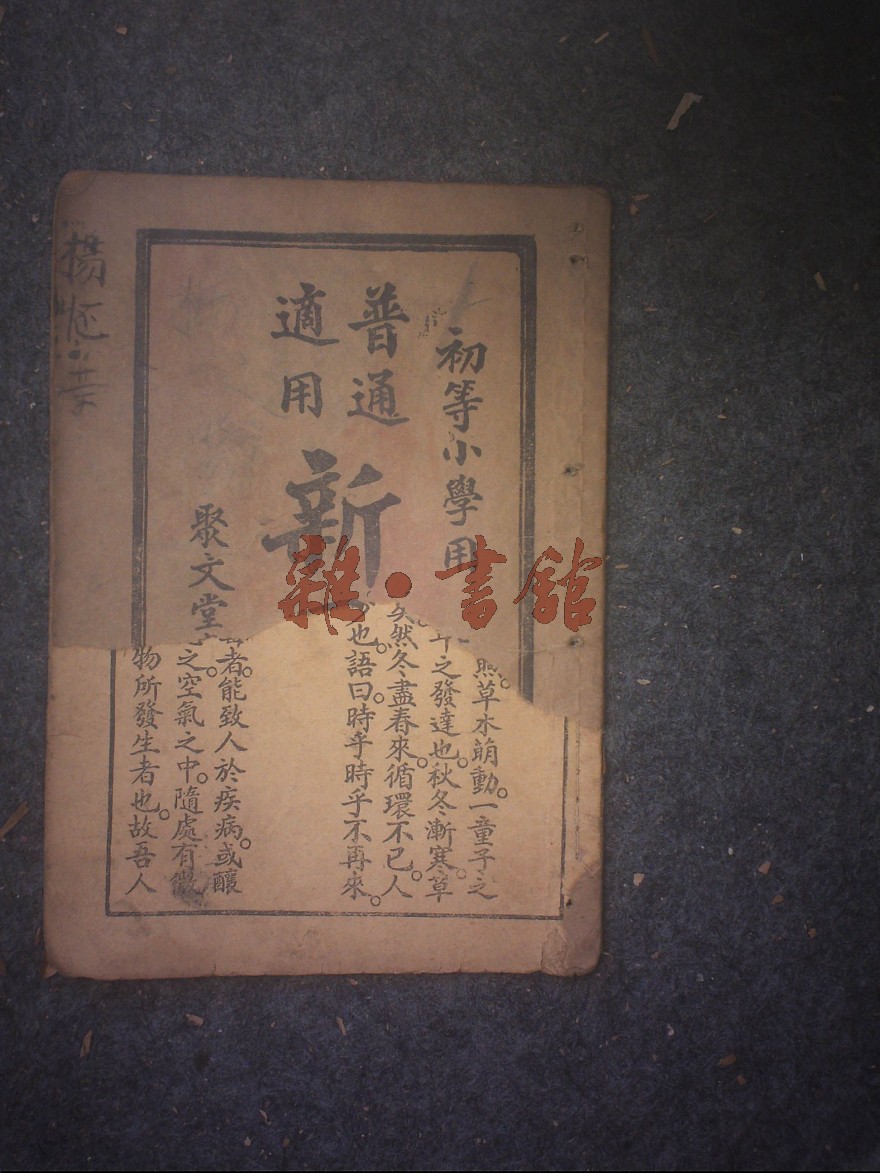 初等小學用
普通
適用
新
聚文堂
雜·書館
照。草木萌動。一童子之
年之發達也。秋冬漸寒。草
然。冬盡春來。循環不已。人
也。語曰。時乎時乎不再來。
者。能致人於疾病。或釀
之空氣之中。隨處有微
物所發生者也。故吾人
楊